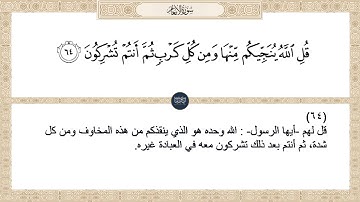 سورة الأنعام
قُلِ ٱللَّهُ يُنَجِّيكُم مِّنْهَا وَمِن كُلِّ كَرْبٍ ثُمَّ أَنتُمْ تُشْرِكُونَ ٦٤
(٦٤)
قل لهم -أيها الرسول- : الله وحده هو الذي ينقذكم من هذه المخاوف ومن كل
شدة، ثم أنتم بعد ذلك تشركون معه في العبادة غيره.